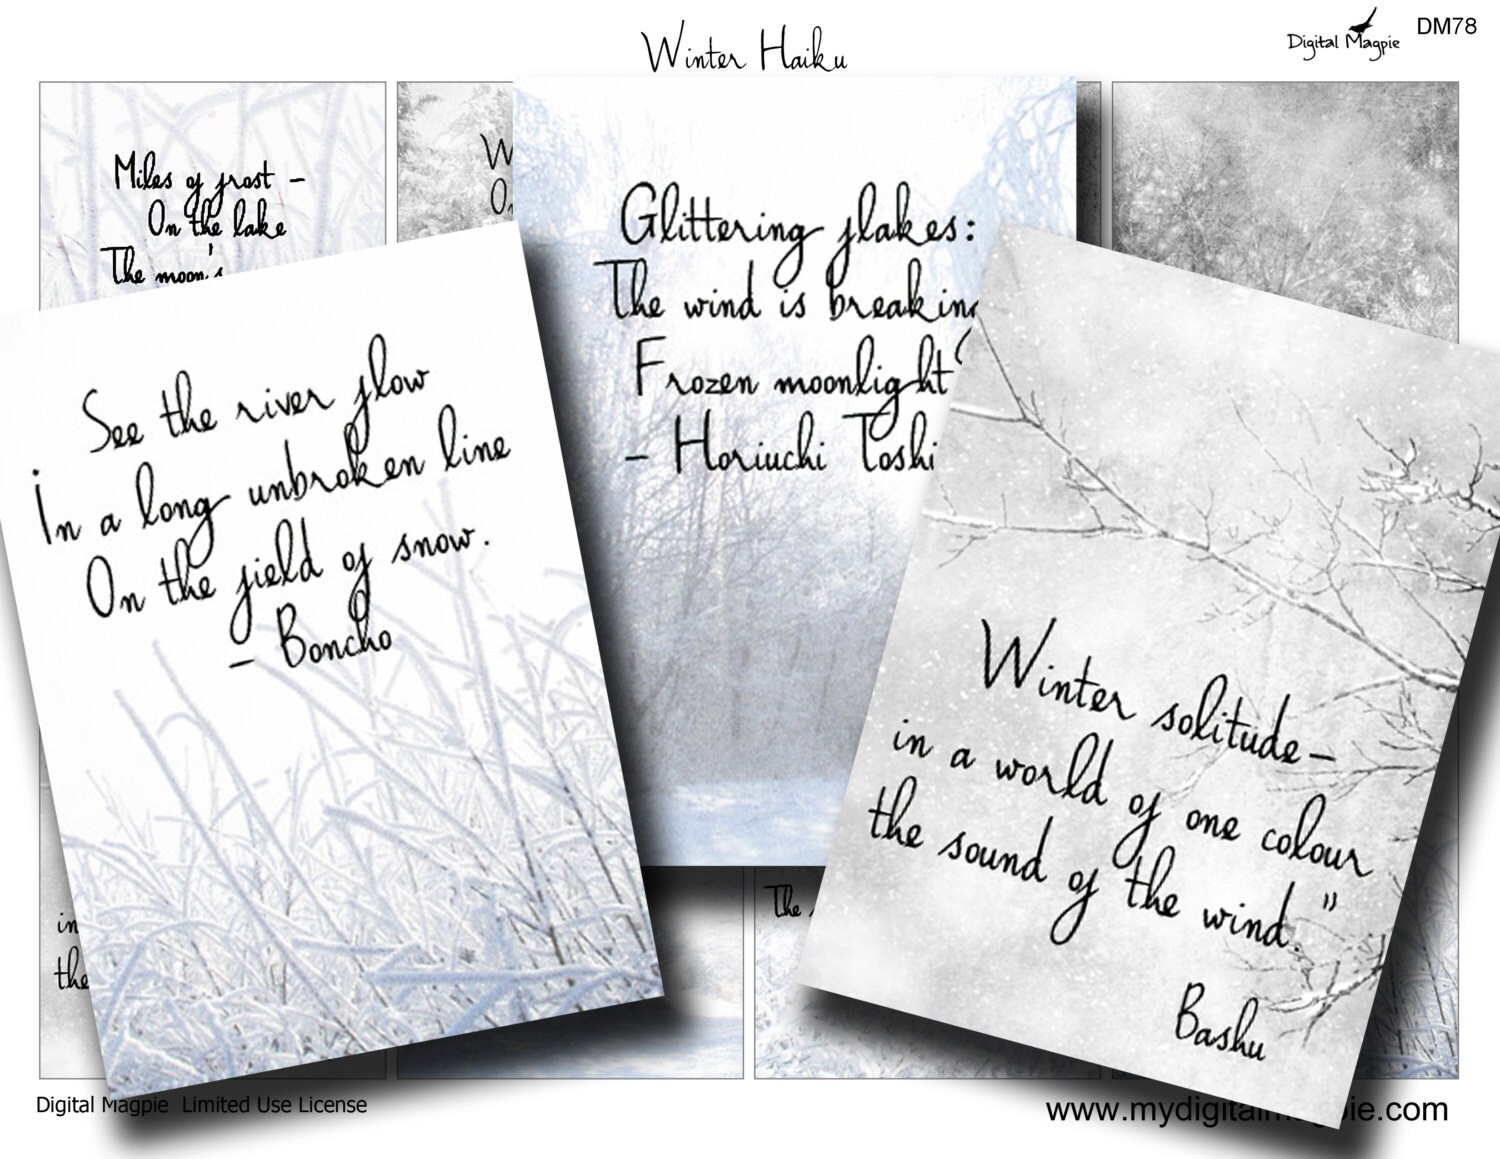 Winter Haiku
Digital Magpie
DM78
Miles of frost –
On the lake
The moon's
Glittering flakes:
The wind is breaking
Frozen moonlight
– Horiuchi Toshi
See the river flow
In a long unbroken line
On the field of snow.
– Boncho
Winter solitude–
in a world of one colour
the sound of the wind."
Bashu
in
the
The
Digital Magpie Limited Use License
www.mydigitalmagpie.com